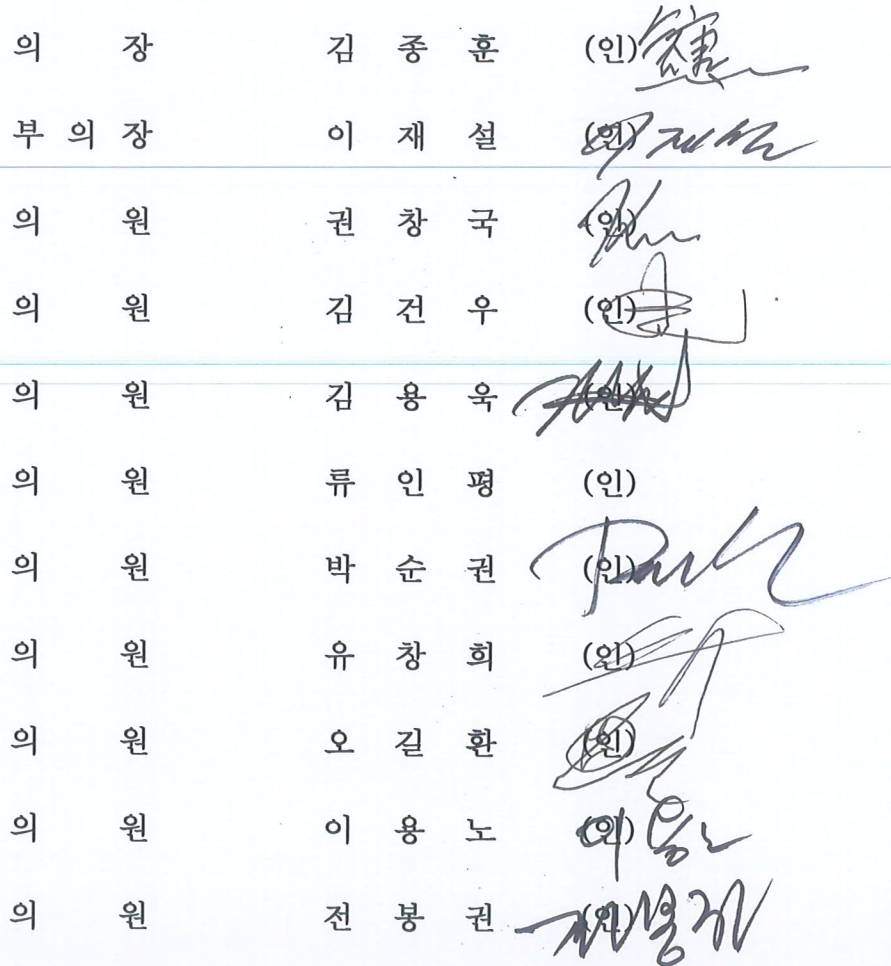 의 장 김 종 훈 (인)
부 의 장 이 재 설 (인) 이재설
의 원 권 창 국 (인)
의 원 김 건 우 (인)
의 원 김 용 욱 (인)
의 원 류 인 평 (인)
의 원 박 순 권 (인)
의 원 유 창 희 (인)
의 원 오 길 환 (인)
의 원 이 용 노 (인) 이용노
의 원 전 봉 권 (인) 전봉권